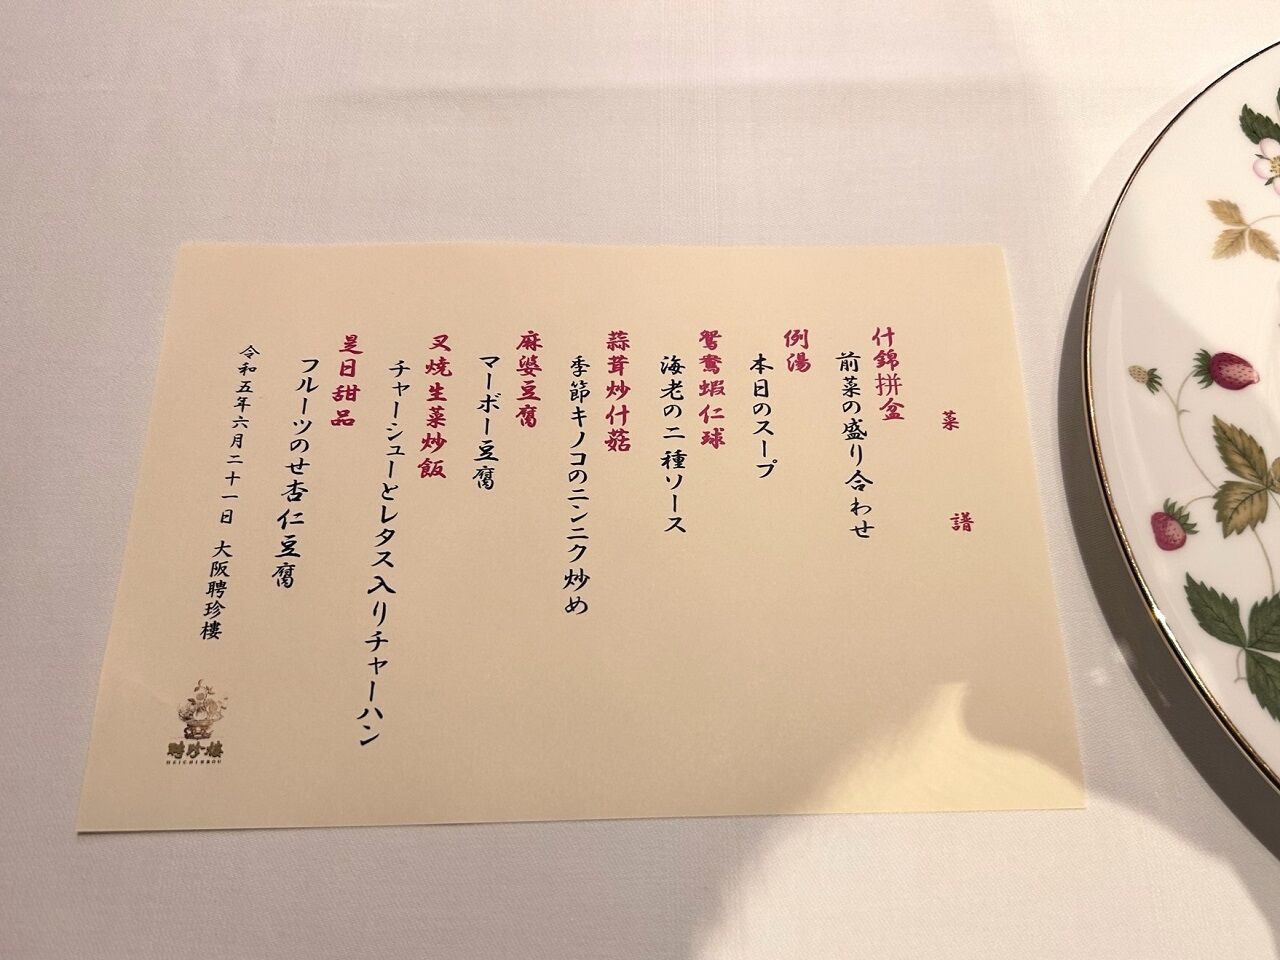 菜譜
什錦拼盆
前菜の盛り合わせ
例湯
本日のスープ
鴛鴦蝦仁球
海老の二種ソース
蒜茸炒什菇
季節キノコのニンニク炒め
麻婆豆腐
マーボー豆腐
叉焼生菜炒飯
チャーシューとレタス入りチャーハン
是日甜品
フルーツのせ杏仁豆腐
令和五年六月二十一日 大阪聘珍樓
聘珍樓
HEICHINROU